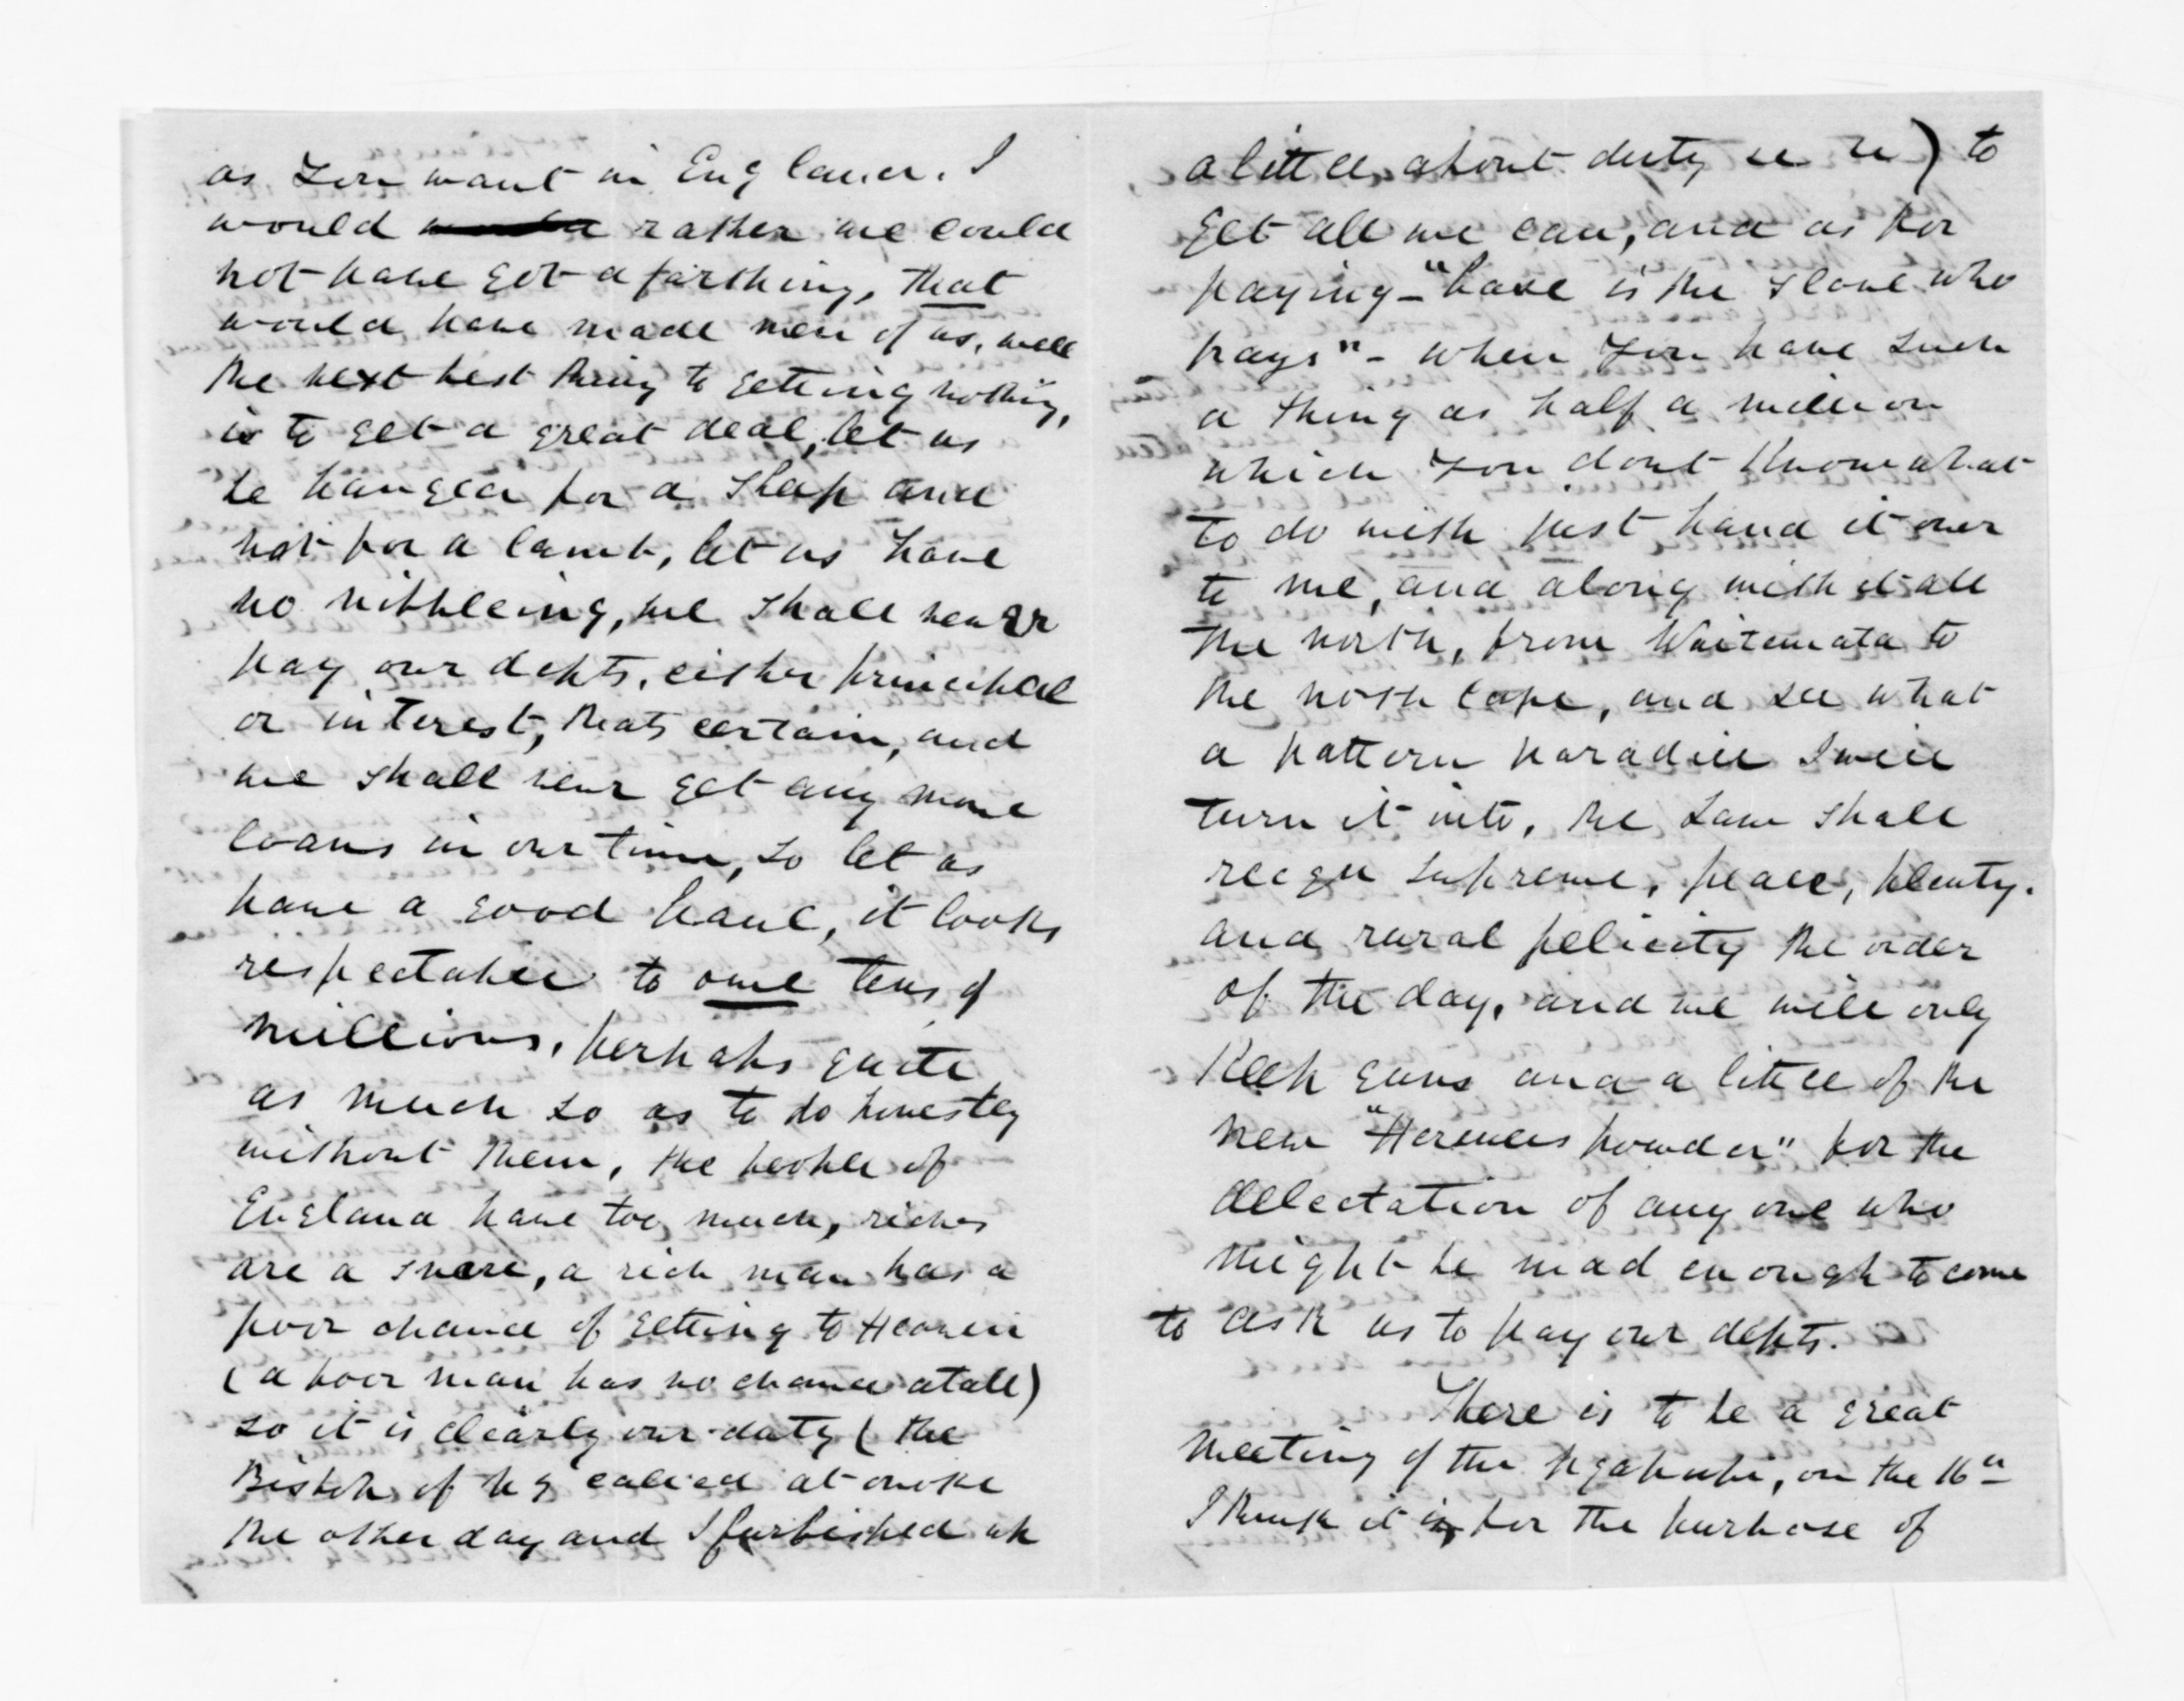 as you want in England. I
would rather we could
not have got a farthing, that
would have made men of us, well
the next best thing to getting nothing,
is to get a great deal, let us
be hanged for a sheep and
not for a lamb, let us have
no nibbleing, we shall never
pay our debts, either principal
or interest, thats certain, and
we shall never get any more
loans in our time, so let us
have a good haul, it looks
respectable to owe tens of
millions, perhaps quite
as much so as to do honestly
without them, the people of
England have too much, riches
are a snare, a rich man has a
poor chance of getting to Heaven
(a poor man has no chance atall)
so it is clearly our duty (the
Bishop of NZ called at onoke
the other day and I furbished up
a little about duty &c &c) to
get all we can, and as for
paying - "base is the slave who
pays" - when you have such
a thing as half a million
which you dont know what
to do with just hand it over
to me, and along with it all
the north, from Waitemata to
the north cape, and see what
a pattern paradise I will
turn it into, the Law shall
reign supreme, peace, plenty.
and rural felicity the order
of the day, and we will only
Keep guns and a little of the
new "Hercules powder" for the
delectation of any one who
might be mad enough to come
to ask us to pay our debts.
There is to be a great
meeting of the Ngapuhi, on the 16th
I think it is for the purpose of